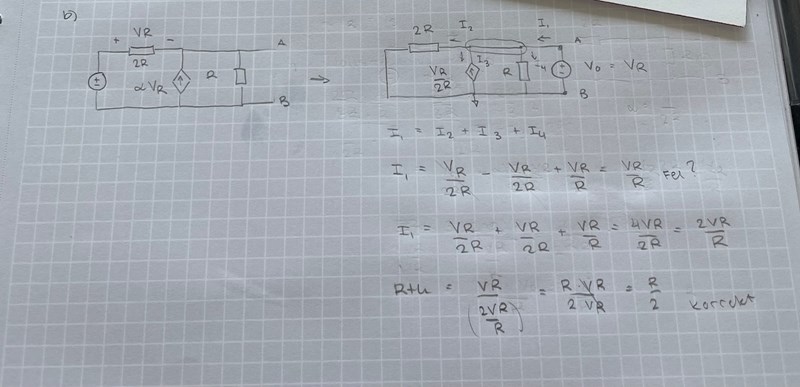 b)
+ VR -
2R
αVR
R
A
B
→
2R
I₂
I₁
A
VR/2R
I₃
R
I₄
V₀ = VR
B
I₁ = I₂ + I₃ + I₄
I₁ = VR/2R - VR/2R + VR/R = VR/R Fel?
I₁ = VR/2R + VR/2R + VR/R = 4VR/2R = 2VR/R
Rth = VR/(2VR/R) = R·VR/2VR = R/2 korrekt